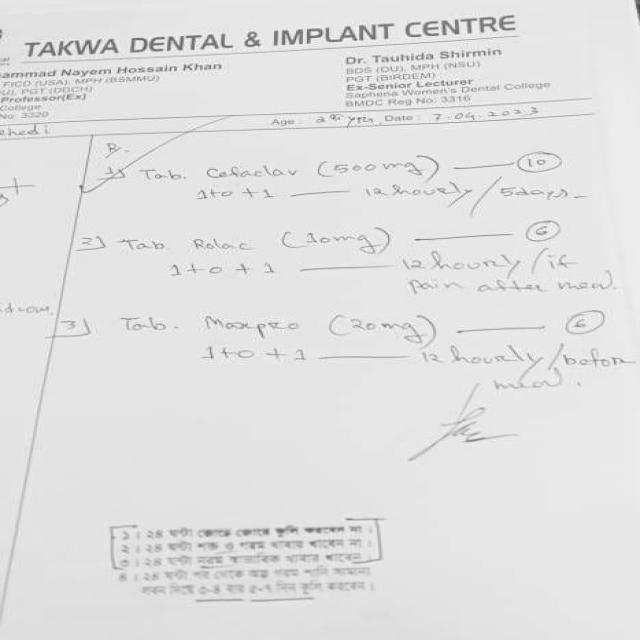 TAKWA DENTAL & IMPLANT CENTRE
ammad Nayem Hossain Khan
FICD (USA), MPH (BSMMU)
PGT (DDCH)
Professor(Ex)
College
No: 3320
Dr. Tauhida Shirmin
BDS (DU), MPH (NSU)
PGT (BIRDEM)
Ex-Senior Lecturer
Saphena Women's Dental College
BMDC Reg No: 3316
ehedi
Age : Date : 7.04.2023
R.
1) Tab. Cefaclav (500mg) — 10
1+0+1 — 12 hourly / 5days
2) Tab. Rolac (10mg) — 6
1+0+1 — 12 hourly / if
pain after meal.
3) Tab. Maxpro (20mg) — 6
1+0+1 — 12 hourly / before
meal.
১। ২৪ ঘন্টা জোরে জোরে কুলি করবেন না।
২। ২৪ ঘন্টা শক্ত ও গরম খাবার খাবেন না।
৩। ২৪ ঘন্টা নরম স্বাভাবিক খাবার খাবেন
৪। ২৪ ঘন্টা পর থেকে অল্প গরম পানি
লবন দিয়ে ৩-৪ বার ৫-৭ দিন কুলি করবেন।